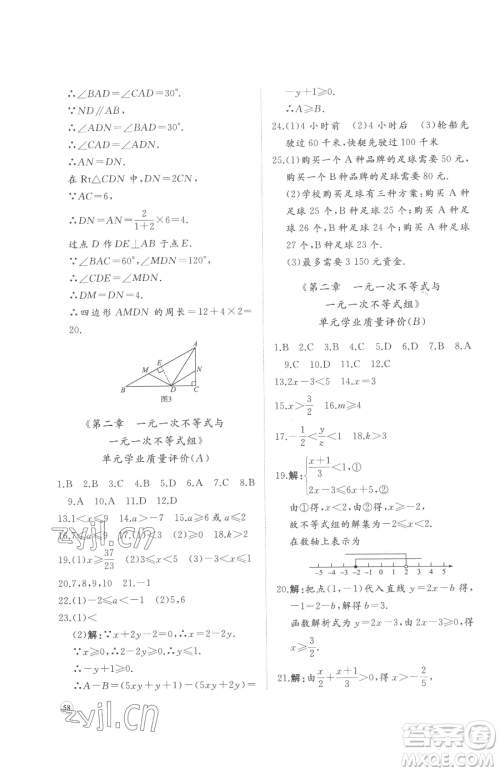 ∴∠BAD=∠CAD=30°.
∵ND∥AB,
∴∠ADN=∠BAD=30°.
∴∠CND=60°.
在Rt△CDN中,DN=2CN,
∴DN=2/(1+2)×6=4.
过点D作DT⊥AB于点E.
∵∠BAC=60°,
∴∠CDE=∠CAD=30°.
∴DM=DN=4.
∴四边形AMDN的周长=12+4×2=
20.
A
M
N
B
D
C
图3
《第二章 一元一次不等式与
一元一次不等式组》
单元学业质量评价(A)
1.B 2.B 3.C 4.D 5.D 6.B 7.C 8.B
9.A 10.A 11.D 12.D
18.k>2
19.(1)x≥37/23 (2)3≤x<5
20.7,8,9,10 21.-1
22.(1)-2≤a<-1 (2)5,6
23.(1)<
(2)解:∵x+2y-2=0,x+y-1=-y+1.
∵x≥0,
∴-2y+2≥0.
∴-y+1≥0.
∴A-B=(5xy+y)-(5xy+2y-1)=
-y+1≥0.
∴A≥B.
24.(1)4小时前 (2)4小时后 (3)轮船先
驶过60千米,快艇先驶过100千米
25.(1)购买一个A种品牌的足球需要50元,
购买一个B种品牌的足球需要80元.
(2)学校购买足球有三种方案:购买A种
足球25个,B种足球25个;购买A种足球
26个,B种足球24个;购买A种足球
27个,B种足球23个.
(3)最多需要3 150元资金.
《第二章 一元一次不等式与
一元一次不等式组》
单元学业质量评价(B)
1.B 2.C 3.C 4.D 5.D 6.B 7.B 8.A
9.C 10.C 11.D 12.C
13.2x-3<5 14.m≤3
15.x>3/2 16.m≤4
17.-1/2<y/z<1 18.k>3
19.解:{(x+1)/3<1,①
2x-3≤6x+5,②
由①得x<2,由②得x≥-2,
故不等式组的解集为-2≤x<2,
在数轴上表示为
-5 -4 -3 -2 -1 0 1 2 3 4 5
20.解:把点(1,-1)代入直线y=2x-b得,
-1=2-b,解得b=3.
函数解析式为y=2x-3,解2x-3≥0得,
x≥3/2.
21.解:由x/2+(x+1)/3>0,解得x>-2/5,
58
zyjl.cn
zyjl.cn
作业精灵